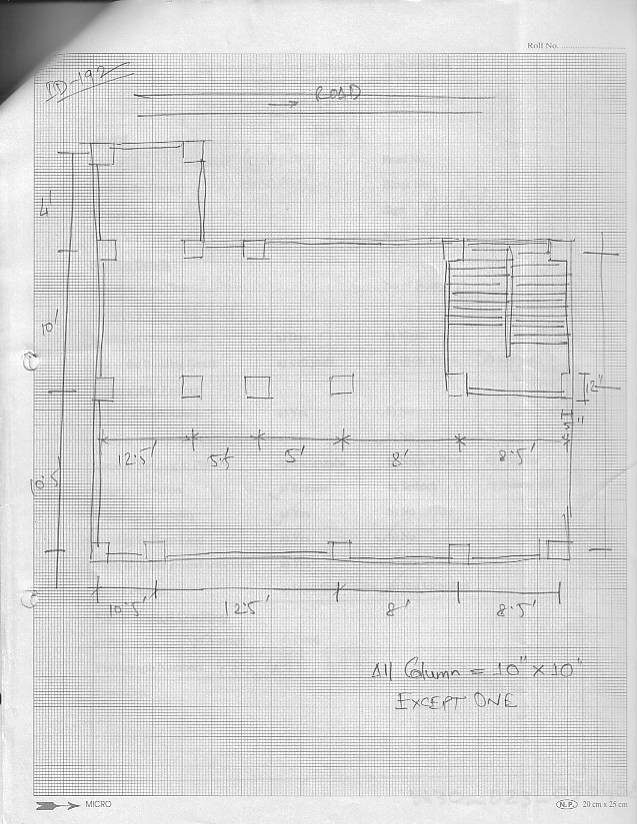 Roll No.
DD-192
→ ROAD
4'
10'
12"
5"
12.5' 5.5' 5' 8' 8.5'
10.5'
10.5' 12.5' 8' 8.5'
All Column = 10" X 10"
EXCEPT ONE
MICRO
N.P. 20 cm x 25 cm